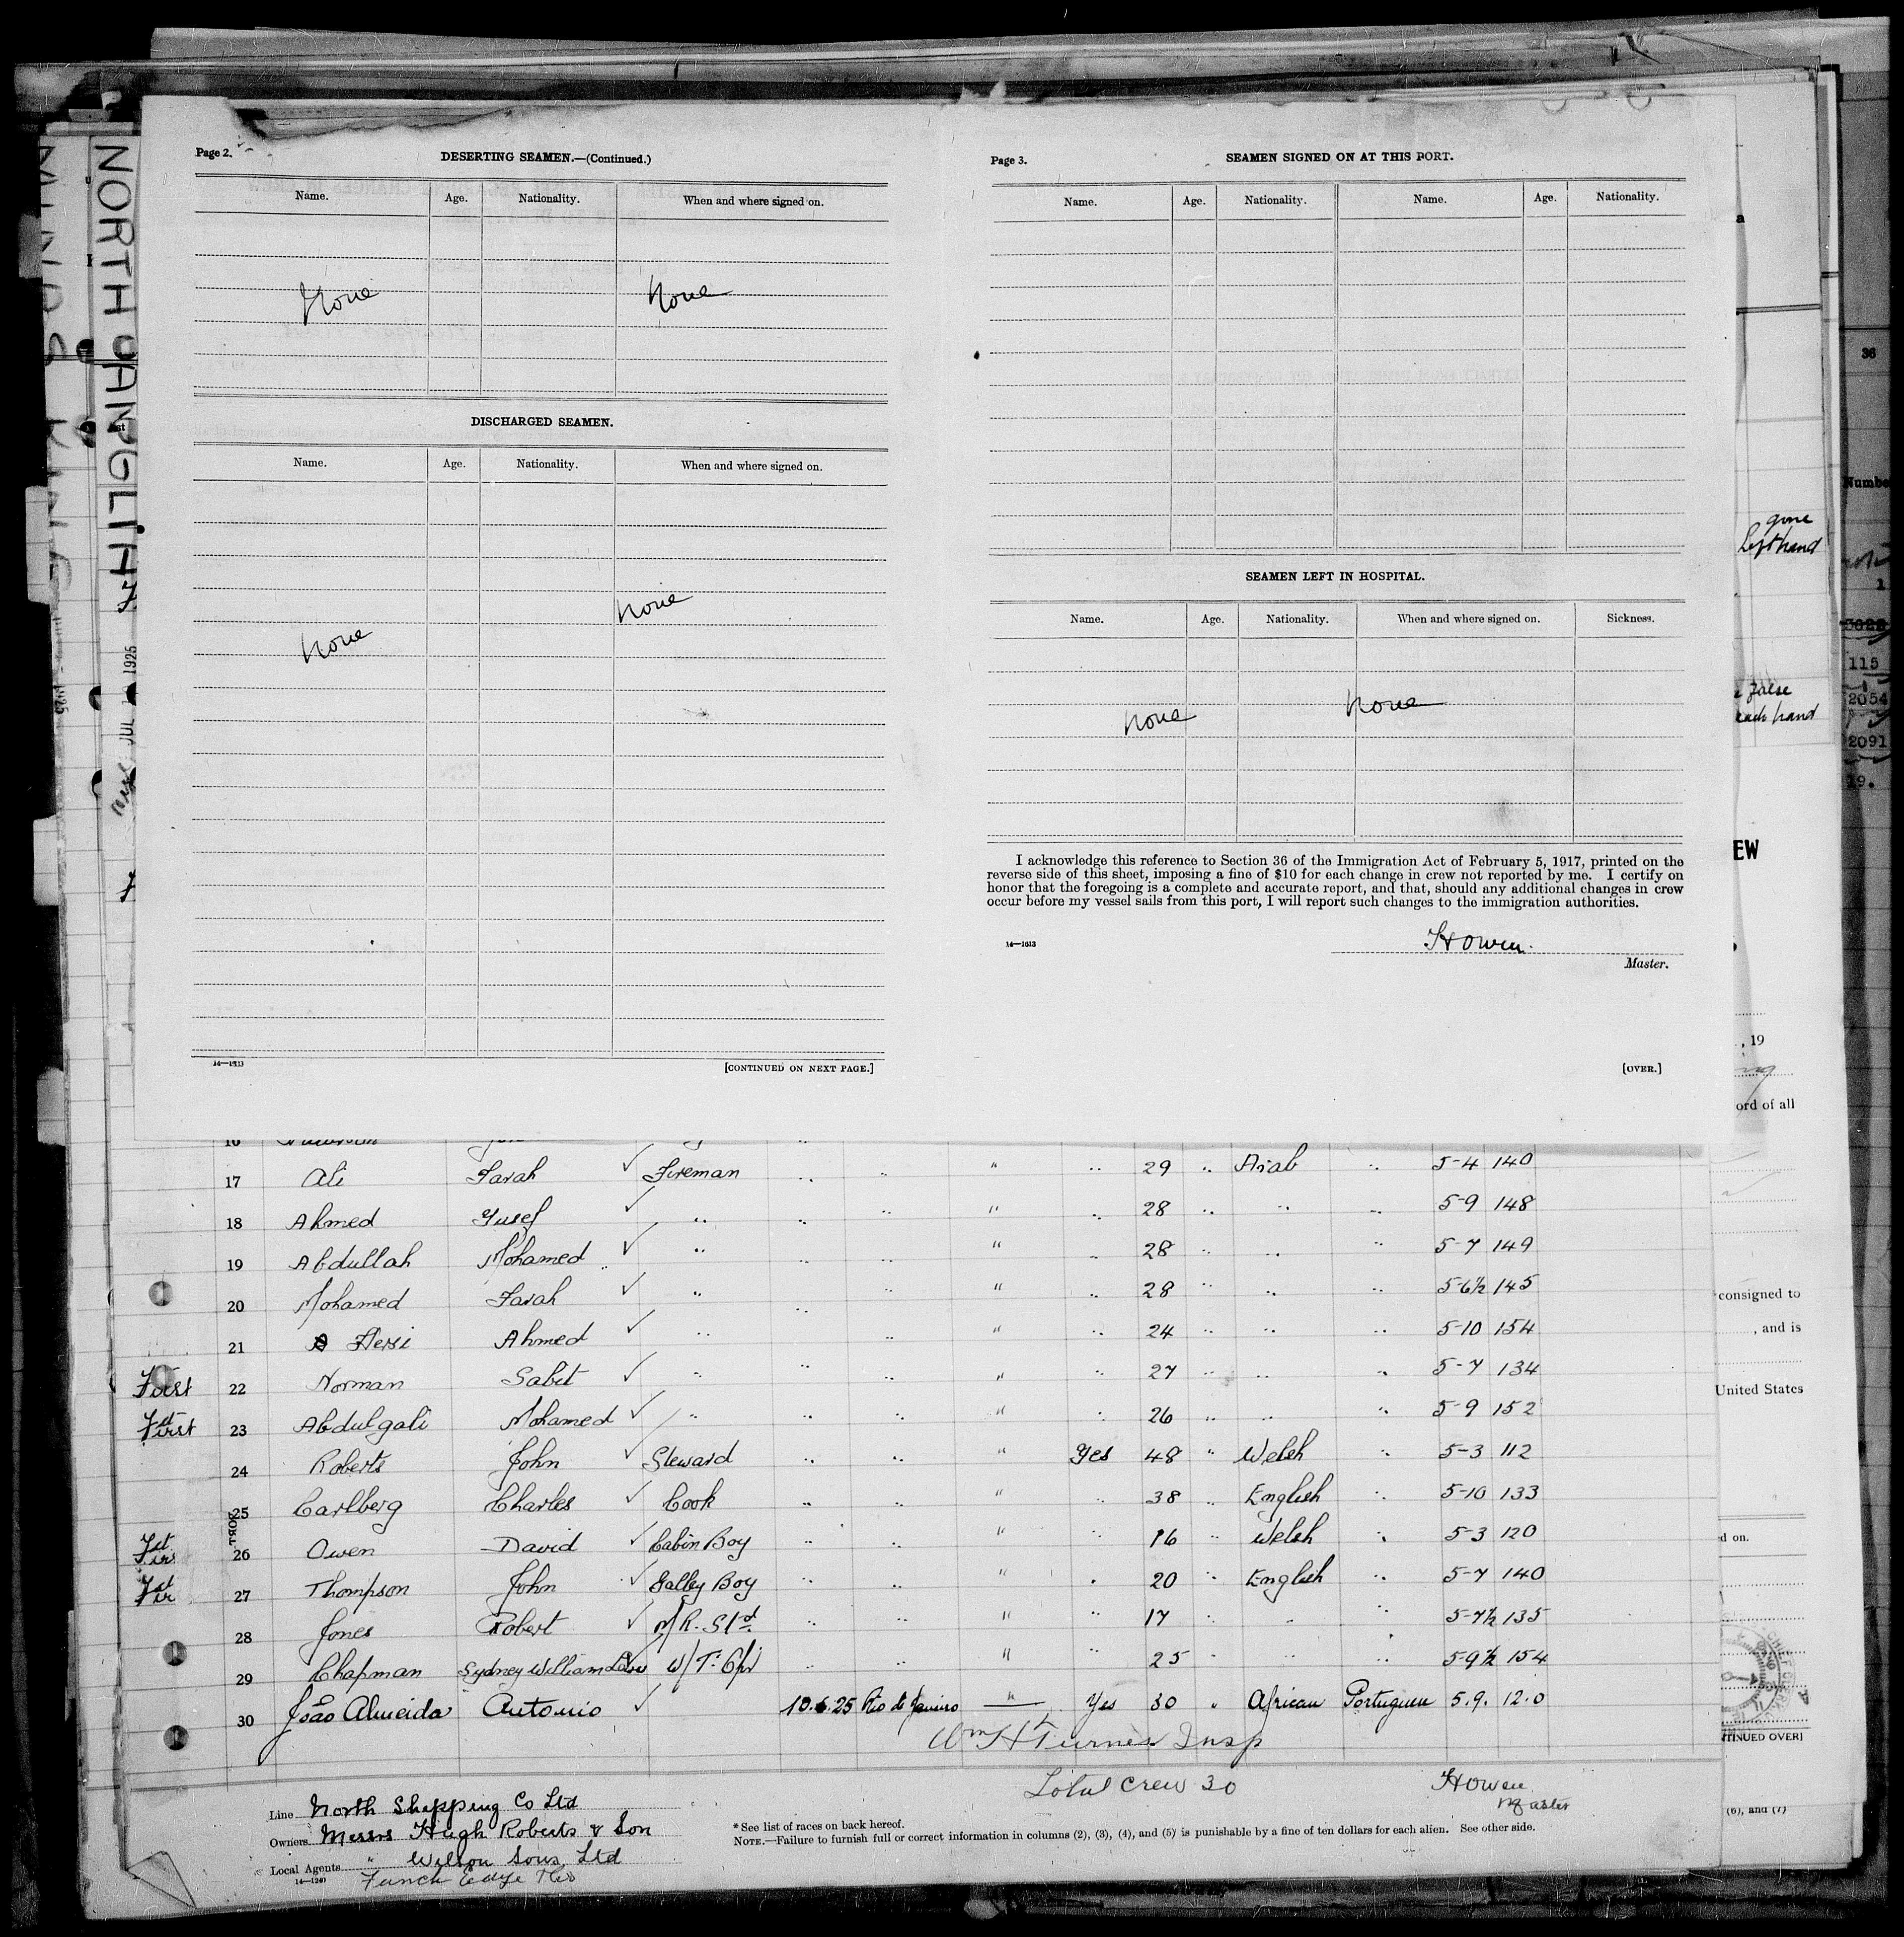 Page 2.
DESERTING SEAMEN.—(Continued.)
Name. Age. Nationality. When and where signed on.
None None
DISCHARGED SEAMEN.
Name. Age. Nationality. When and where signed on.
None
None
14—1613
[CONTINUED ON NEXT PAGE.]
Page 3.
SEAMEN SIGNED ON AT THIS PORT.
Name. Age. Nationality. Name. Age. Nationality.
SEAMEN LEFT IN HOSPITAL.
Name. Age. Nationality. When and where signed on. Sickness.
None None
I acknowledge this reference to Section 36 of the Immigration Act of February 5, 1917, printed on the
reverse side of this sheet, imposing a fine of $10 for each change in crew not reported by me. I certify on
honor that the foregoing is a complete and accurate report, and that, should any additional changes in crew
occur before my vessel sails from this port, I will report such changes to the immigration authorities.
14—1613
H Owen.
Master.
[OVER.]
NORTH ANGLIA
JUL 1925
36
Numbe
gone
Left hand
1
3628
115
false
2054
each hand
2091
19.
EW
, 19
ord of all
consigned to
, and is
United States
ed on.
TINUED OVER]
(6), and (7)
16
17 Ali Farah ✓ Fireman .. .. " .. 29 .. Arab .. 5-4 140
18 Ahmed Yusef ✓ .. .. .. " .. 28 .. .. .. 5-9 148
19 Abdullah Mohamed ✓ .. .. .. " .. 28 .. .. .. 5-7 149
20 Mohamed Farah ✓ .. .. .. " .. 28 .. .. .. 5-6½ 145
21 Hersi Ahmed ✓ .. .. " .. 24 .. .. .. 5-10 154
First 22 Norman Sabit ✓ .. .. " .. 27 .. .. .. 5-7 134
First 23 Abdulgali Mohamed ✓ .. .. .. " .. 26 .. .. .. 5-9 152
24 Roberts John ✓ Steward .. .. " Yes 48 " Welsh .. 5-3 112
25 Carlberg Charles ✓ Cook .. .. " .. 38 .. English .. 5-10 133
26 Owen David ✓ Cabin Boy .. .. " .. 16 .. Welsh .. 5-3 120
27 Thompson John ✓ Galley Boy .. .. " . 20 .. English .. 5-7 140
28 Jones Robert ✓ M/R. Std .. .. " .. 17 .. .. .. 5-7½ 135
29 Chapman Sydney William ✓ W/T. Opr .. .. " .. 25 .. .. .. 5-9½ 154
30 João Almeida Antonio ✓ 10.6.25 Rio de Janeiro " Yes 30 " African Portuguese 5.9. 12.0
Wm H Turner Insp
Total Crew 30
H Owen
Master
Line North Shipping Co Ltd
Owners Messrs Hugh Roberts & Son
Local Agents " Wilson Sons, Ltd
14—1240
Funch Edye & Co
* See list of races on back hereof.
NOTE.—Failure to furnish full or correct information in columns (2), (3), (4), and (5) is punishable by a fine of ten dollars for each alien. See other side.